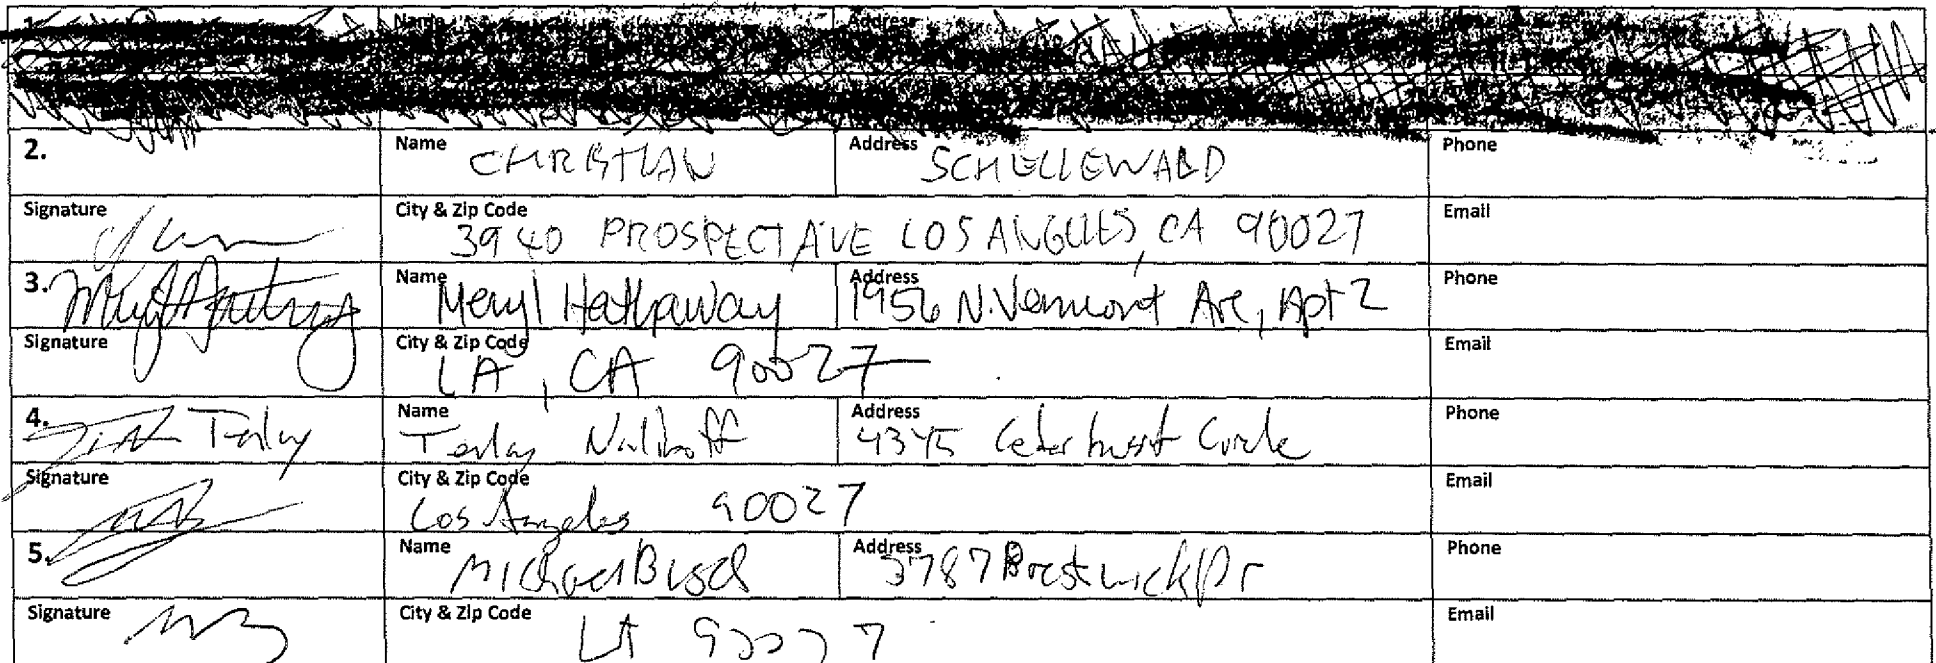 Name Address
2. Name CHRISTIAN Address SCHELLEWALD Phone
Signature City & Zip Code 3940 PROSPECT AVE LOS ANGELES, CA 90027 Email
3. Name Meryl Hathaway Address 1956 N. Vermont Ave, Apt 2 Phone
Signature City & Zip Code LA, CA 90027 Email
4. Name Address 4345 Cedarhurst Circle Phone
Signature City & Zip Code Los Angeles 90027 Email
5. Name Michael Busch Address 3787 Brestwick Dr Phone
Signature City & Zip Code LA Email